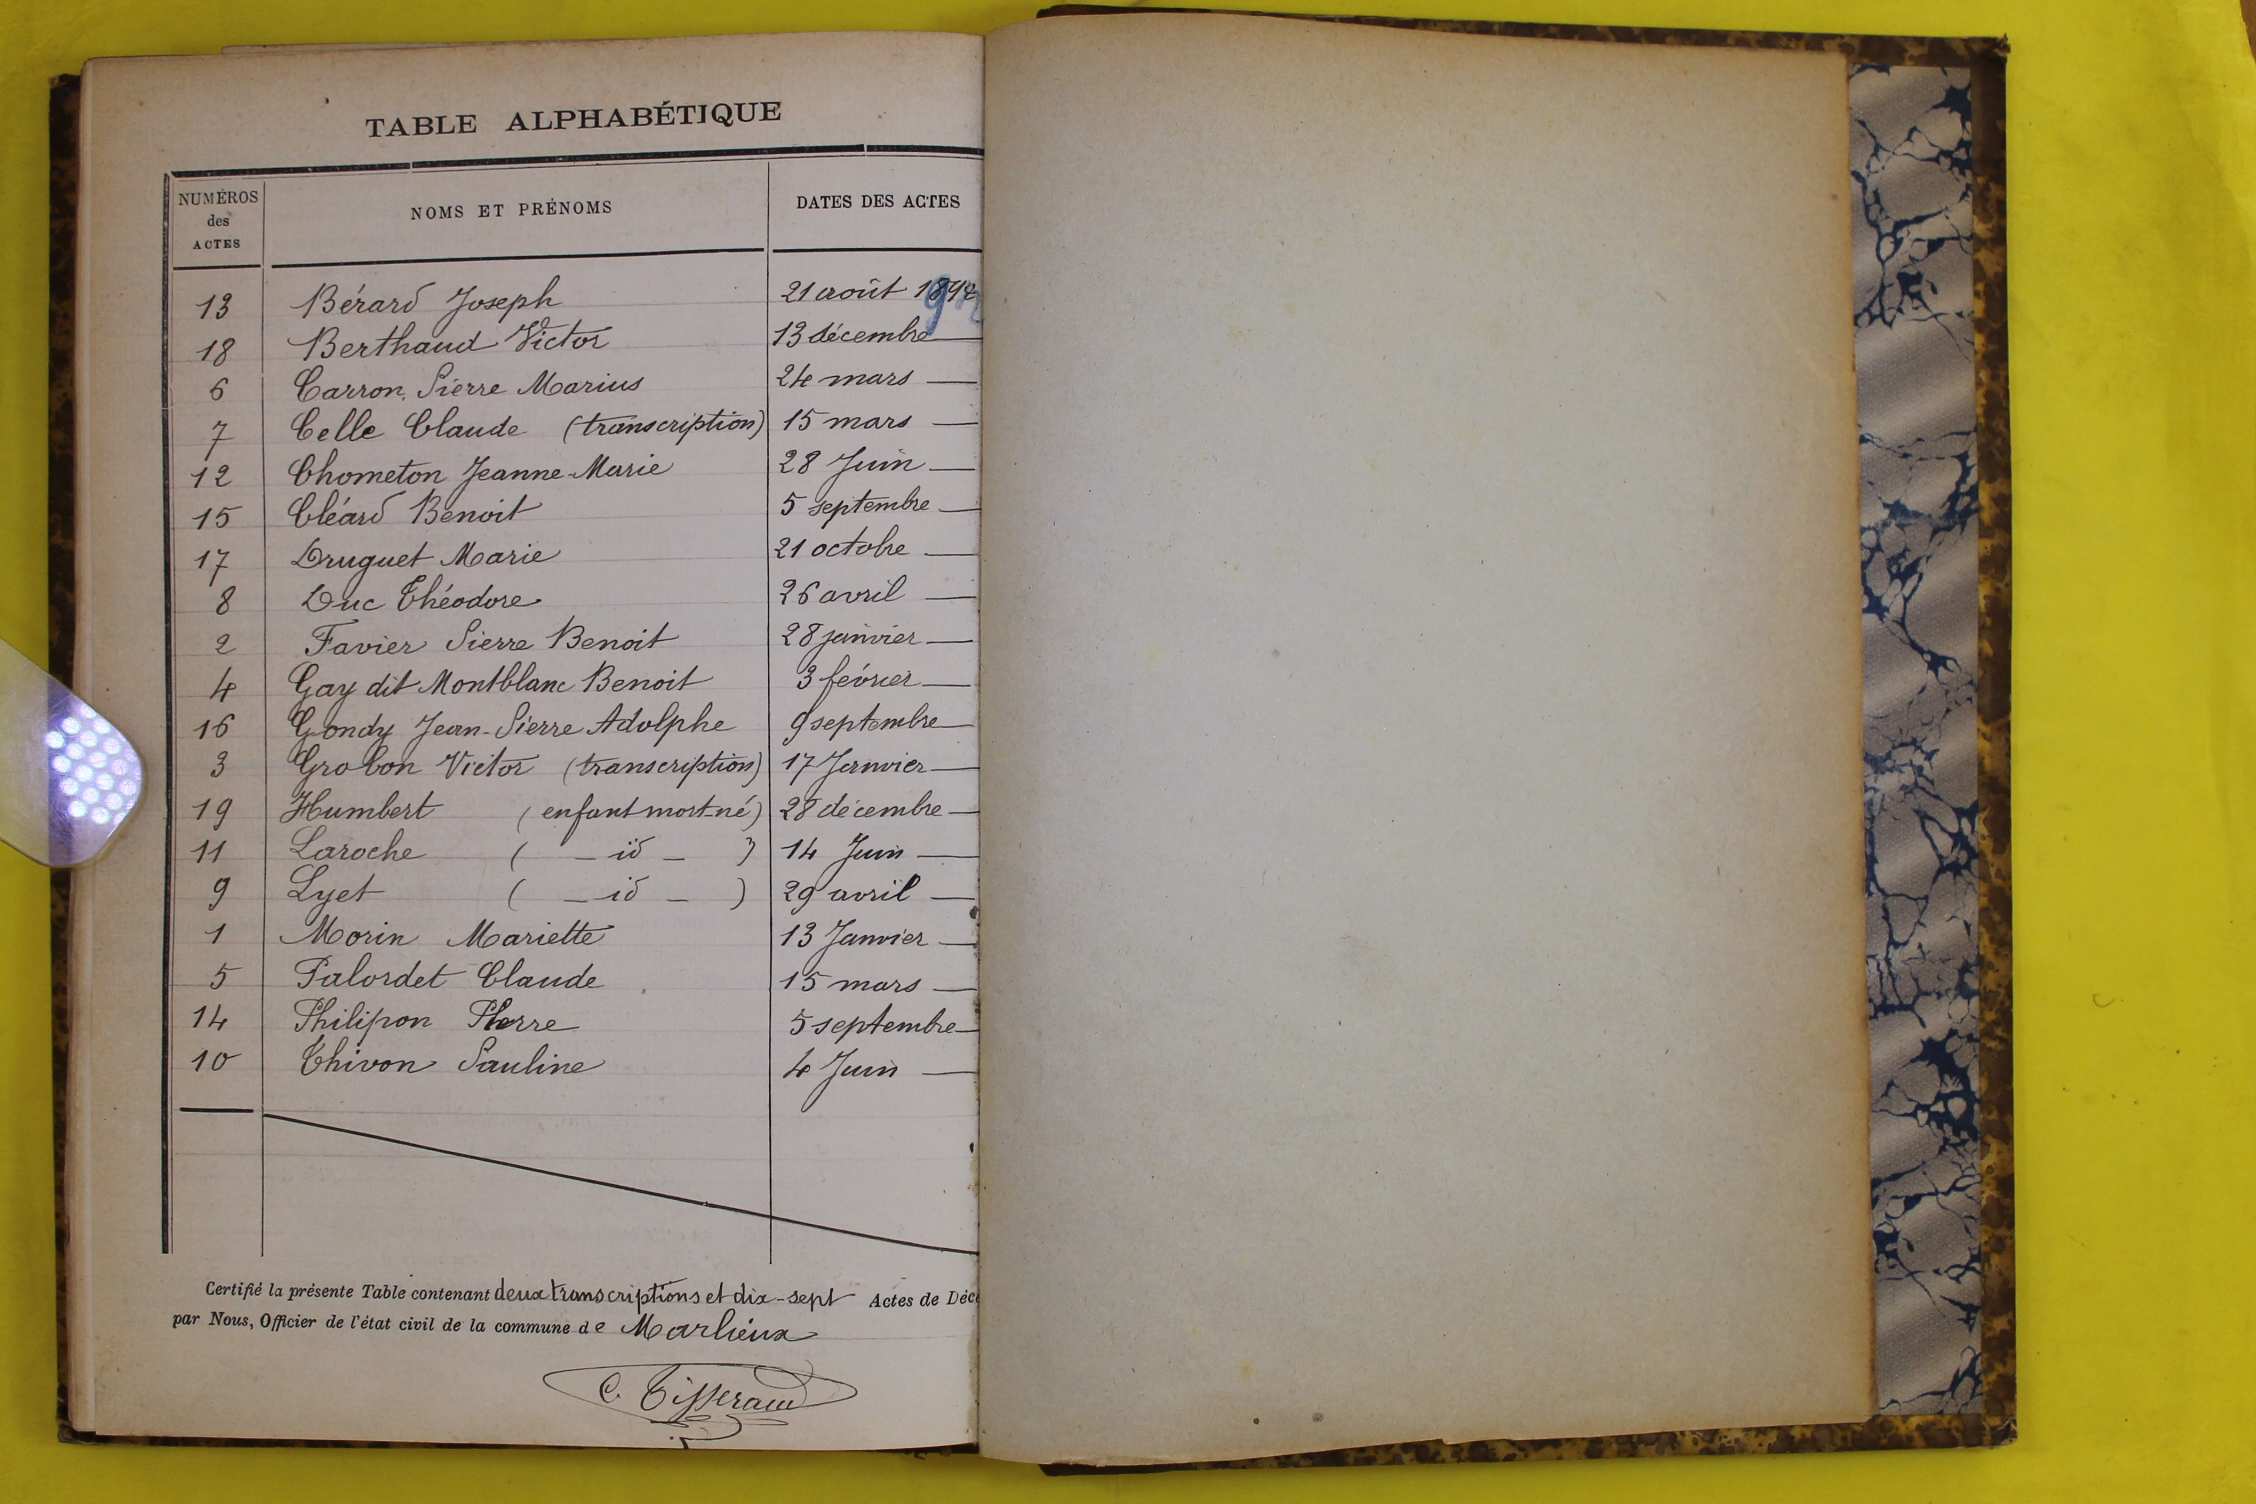 TABLE ALPHABÉTIQUE
NUMÉROS des ACTES NOMS ET PRÉNOMS DATES DES ACTES
13 Bérard Joseph 21 août
18 Berthaud Victor 13 décembre —
6 Carron Pierre Marius 24 mars —
7 Celle Claude (transcription) 15 mars —
12 Chometon Jeanne-Marie 28 Juin —
15 Cléard Benoit 5 septembre —
17 Druguet Marie 21 octobre —
8 Duc Théodore 26 avril —
2 Favier Pierre Benoit 28 janvier —
4 Gay dit Montblanc Benoit 3 février —
16 Gondy Jean-Pierre Adolphe 9 septembre —
3 Grobon Victor (transcription) 17 Janvier —
19 Humbert (enfant mort-né) 28 décembre —
11 Laroche ( — id — ) 14 Juin —
9 Lyet ( — id — ) 29 avril —
1 Morin Mariette 13 Janvier —
5 Palordet Claude 15 mars —
14 Philipon Pierre 5 septembre —
10 Thivon Pauline 4 Juin —
Certifié la présente Table contenant deux transcriptions et dix-sept Actes de Déc
par Nous, Officier de l'état civil de la commune de Marlieux
C. Tisserand